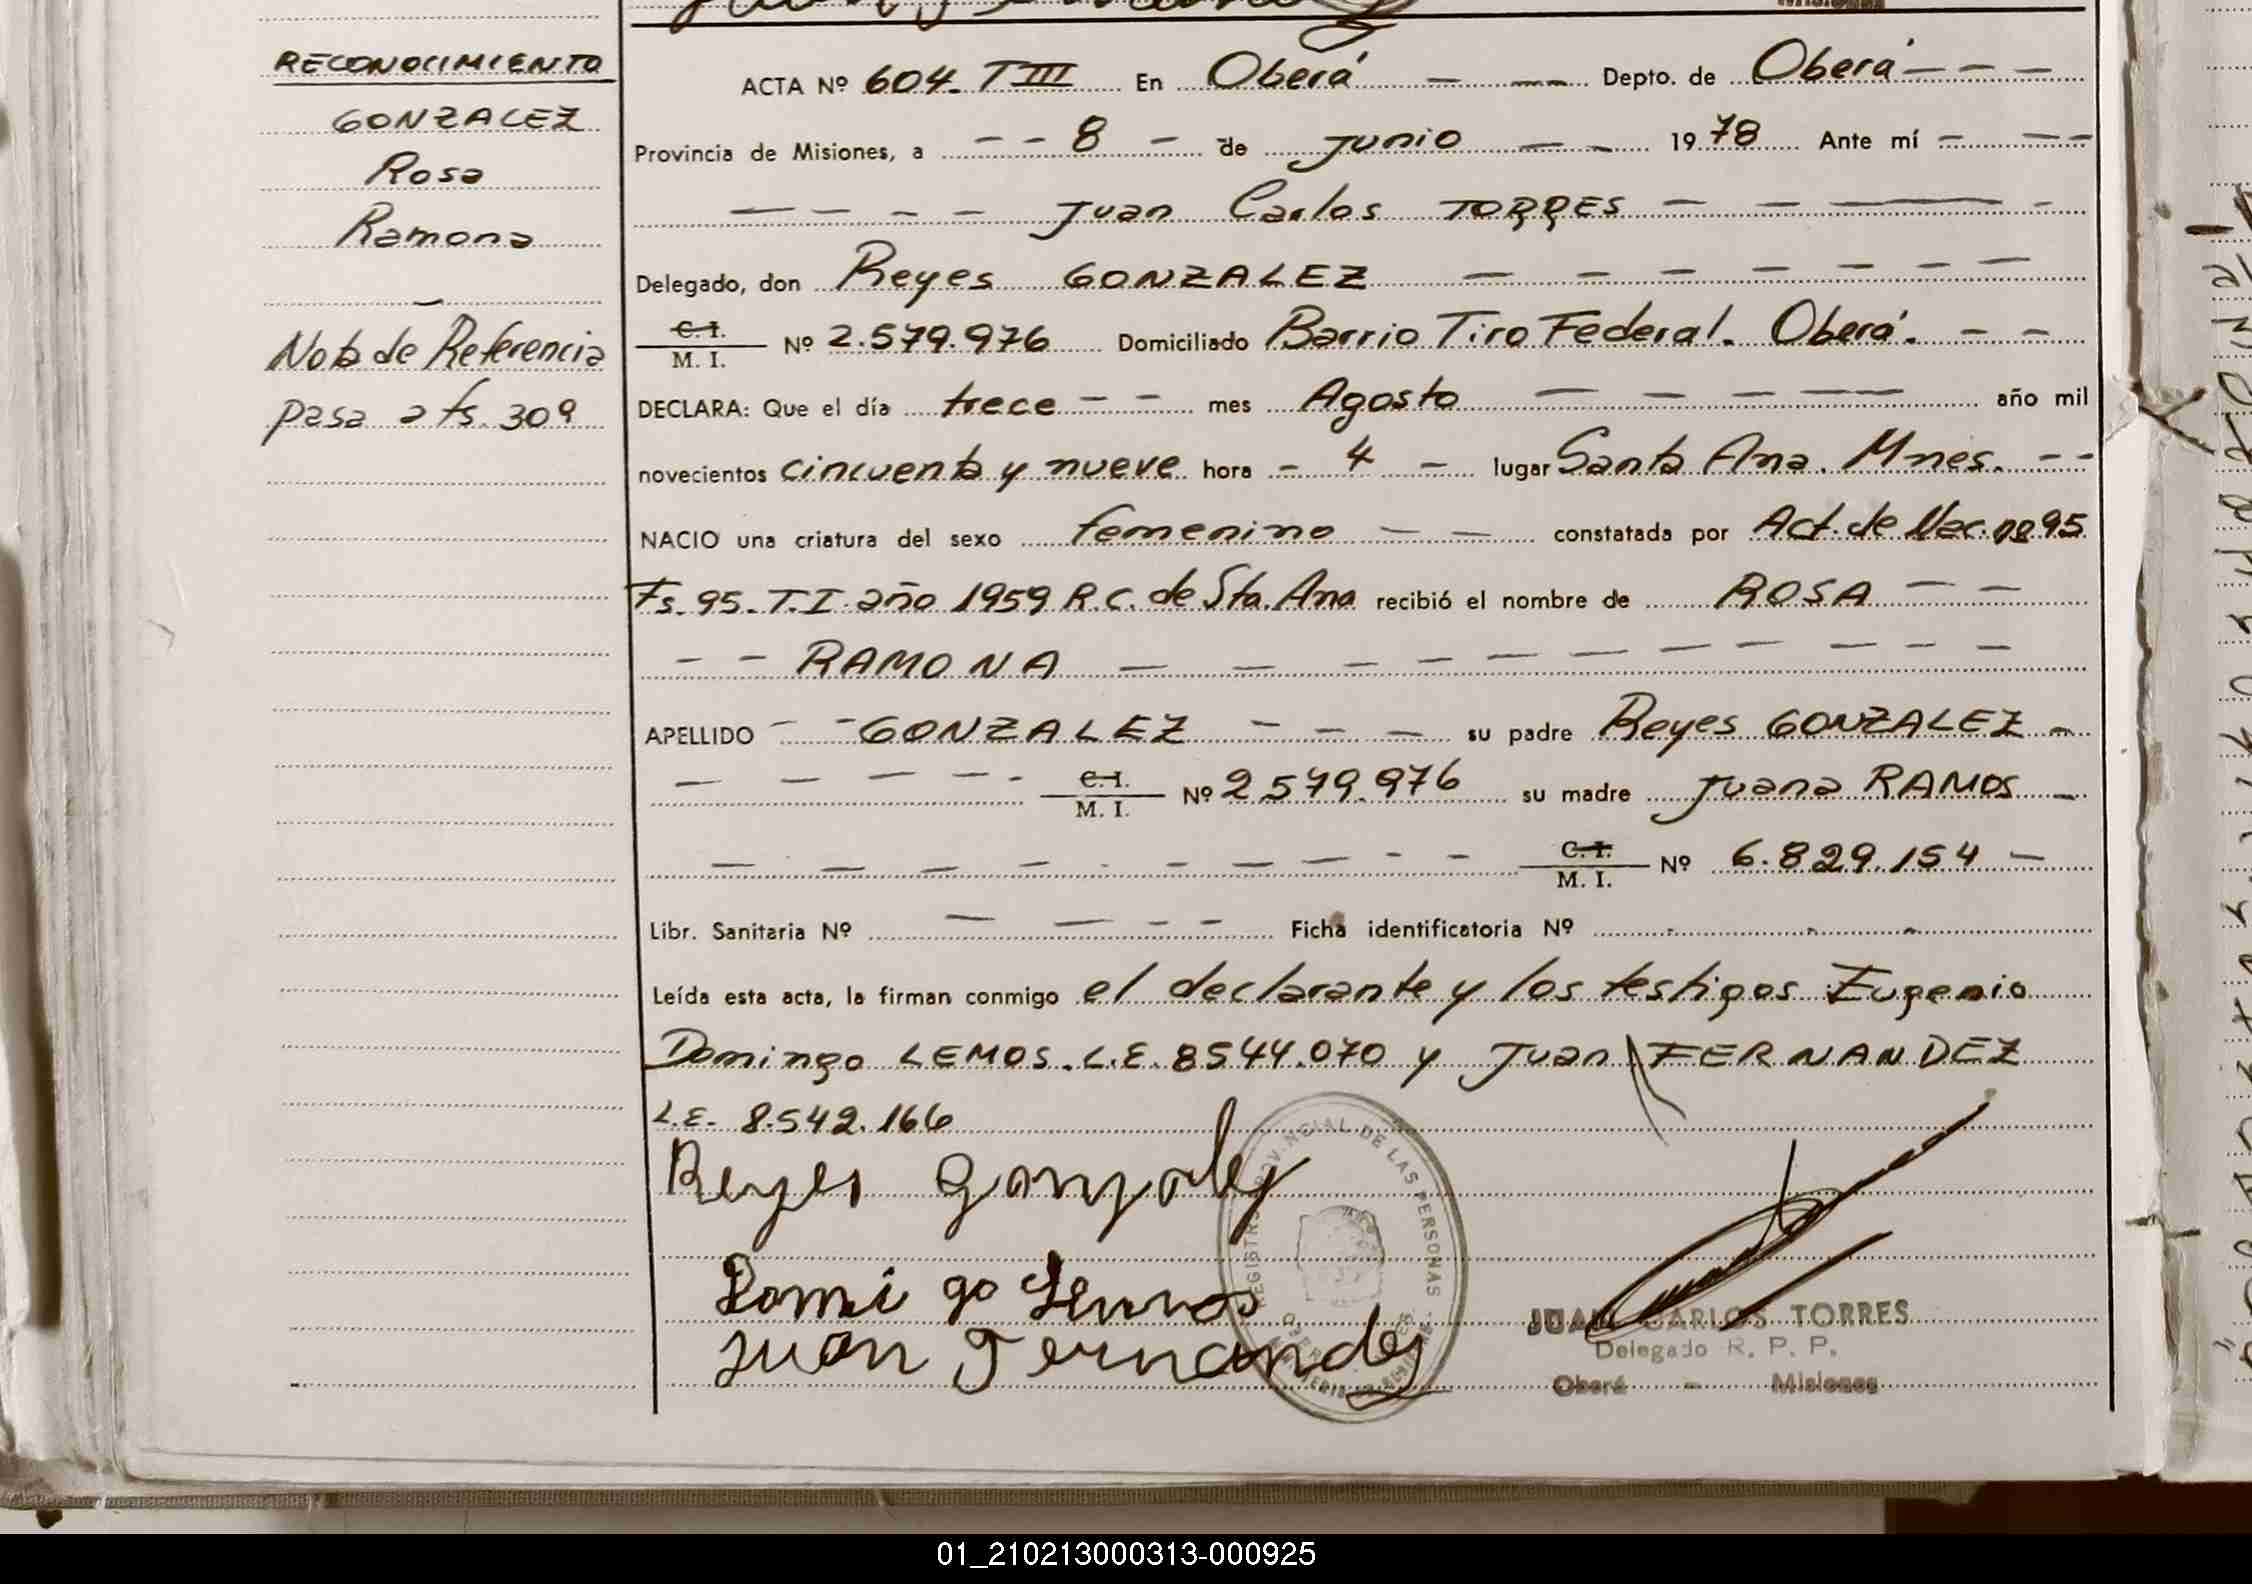 RECONOCIMIENTO
GONZALEZ
Rosa
Ramona
Nota de Referencia
pasa a fs. 309
ACTA Nº 604. T III En Oberá Depto. de Oberá
Provincia de Misiones, a 8 de Junio 1978 Ante mí
Juan Carlos TORRES
Delegado, don Reyes GONZALEZ
C. I.
M. I. Nº 2.579.976 Domiciliado Barrio Tiro Federal. Oberá.
DECLARA: Que el día trece mes Agosto año mil
novecientos cincuenta y nueve hora 4 lugar Santa Ana. Mnes.
NACIO una criatura del sexo femenino constatada por Act. de Nac. nº 95
Fs. 95. T. I. año 1959 R.C. de Sta. Ana recibió el nombre de ROSA
RAMONA
APELLIDO GONZALEZ su padre Reyes GONZALEZ
C. I.
M. I. Nº 2.579.976 su madre Juana RAMOS
C. I.
M. I. Nº 6.829.154
Libr. Sanitaria Nº Ficha identificatoria Nº
Leída esta acta, la firman conmigo el declarante y los testigos Eugenio
Domingo LEMOS. L.E. 8544.070 y Juan FERNANDEZ
L.E. 8.542.166
Reyes Gonzalez
Domi go Lemos
Juan Fernandez
REGISTRO PROVINCIAL DE LAS PERSONAS
JUAN CARLOS TORRES
Delegado R. P. P.
Oberá - Misiones
01_210213000313-000925